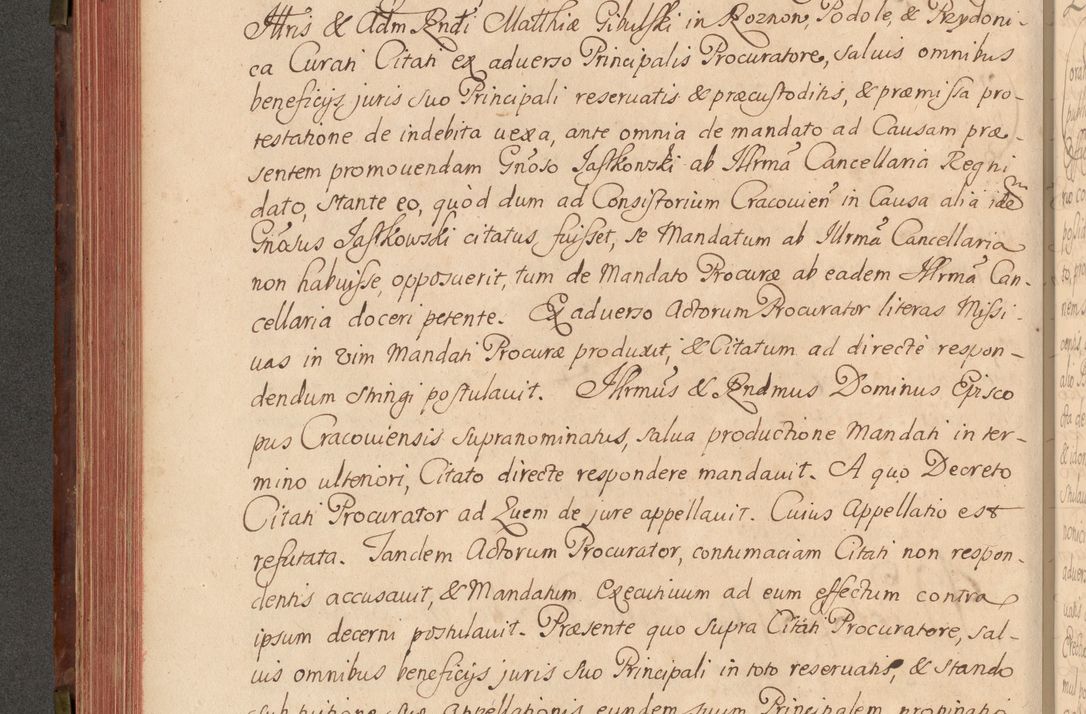 Illtris & Adm Rndi Matthiæ Gibulski in Roznon, Podole, & Przydoni-
ca Curati Citati ex adverso Principalis Procuratore, salvis omnibus
beneficijs juris suo Principali reservatis & præcustoditis, & præmissa pro-
testatione de indebita vexa, ante omnia de mandato ad Causam præ-
sentem promovendam Gnoso Jastkonski ab Illrma Cancellaria Regni
dato, stante eo, quòd dum ad Consistorium Cracovien in Causa alia idē
Gnosus Jastkowski citatus fuisset, se Mandatum ab Illrma Cancellaria
non habuisse, opposuerit, tum de Mandato Procuræ ab eadem Illrma Can-
cellaria doceri petente. Ex adverso Actorum Procurator literas Missi-
vas in vim Mandati Procuræ produxit, & Citatum ad directè respon-
dendum stringi postulavit. Illrmus & Rndmus Dominus Episco
pus Cracoviensis supranominatus, salva productione Mandati in ter-
mino ulteriori, Citato directe respondere mandavit. A quo Decreto
Citati Procurator ad Quem de jure appellavit. Cuius Appellatio est
refutata. Tandem Actorum Procurator, contumaciam Citati non respon-
dentis accusavit, & Mandatum Executivum ad eum effectum contra
ipsum decerni postulavit. Præsente quo supra Citati Procuratore, sal-
vis omnibus beneficijs juris suo Principali in toto reservatis, & stando
suæ appellationis eundem suum Principalem